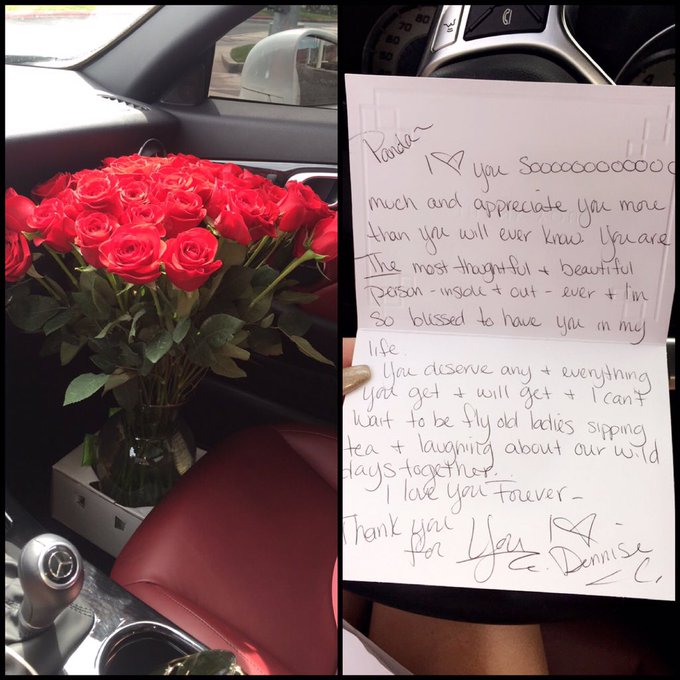 Panda~
I ♡ you Sooooooooooo
much and appreciate you more
than you will ever know. You are
The most thoughtful + beautiful
person - inside + out - ever + I'm
so blessed to have you in my
life.
You deserve any + everything
you get + will get + I can't
wait to be fly old ladies sipping
tea + laughing about our wild
days together...
I love you Forever -
Thank you
for You! ♡
Dennise
C.